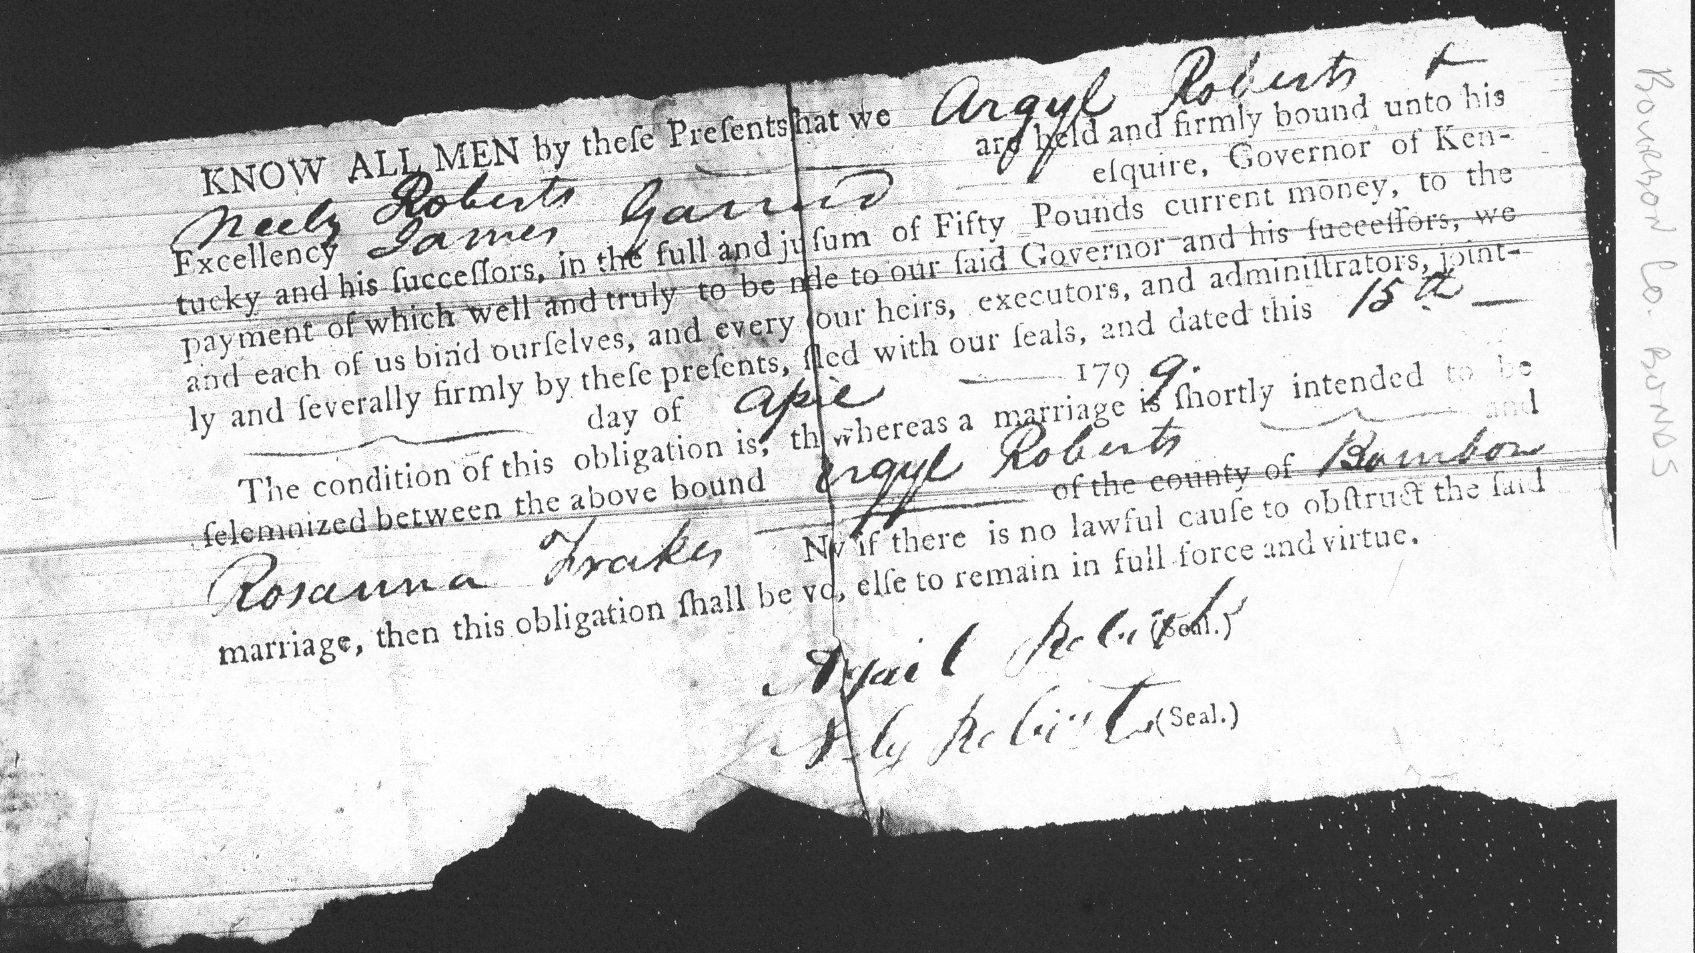 KNOW ALL MEN by theſe Preſents hat we Argyl Roberts +
Neely Roberts are held and firmly bound unto his
Excellency James Garrard eſquire, Governor of Ken-
tucky and his ſucceſſors, in the full and ju ſum of Fifty Pounds current money, to the
payment of which well and truly to be m de to our ſaid Governor and his ſucceſſors, we
and each of us bind ourſelves, and every our heirs, executors, and adminiſtrators, joint-
ly and ſeverally firmly by theſe preſents, ſ led with our ſeals, and dated this 15th
day of 179 9.
The condition of this obligation is, th whereas a marriage is ſhortly intended to be
ſelemnized between the above bound Argyl Roberts and
Rosanna Frakes of the county of Bourbon
N w if there is no lawful cauſe to obſtruct the ſaid
marriage, then this obligation ſhall be vo d, elſe to remain in full force and virtue.
Roberts (Seal.)
Roberts (Seal.)
BOURBON Co. BONDS